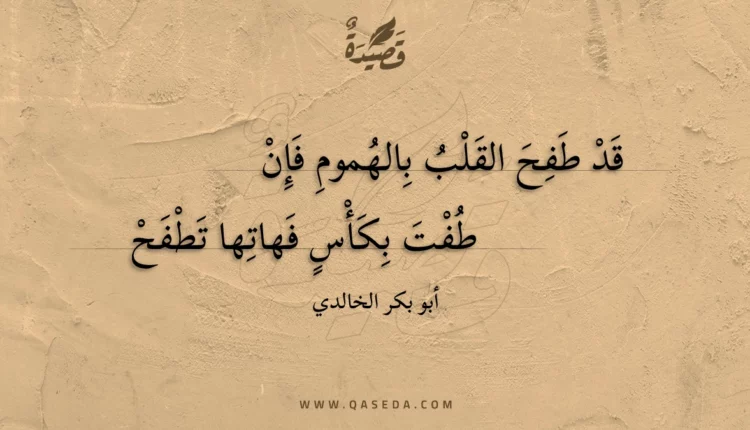 قَصِيْدَةٌ
قَدْ طَفِحَ القَلْبُ بِالهُمومِ فَإِنْ
طُفْتَ بِكَأْسٍ فَهاتِها تَطْفَحْ
أبو بكر الخالدي
WWW.QASEDA.COM